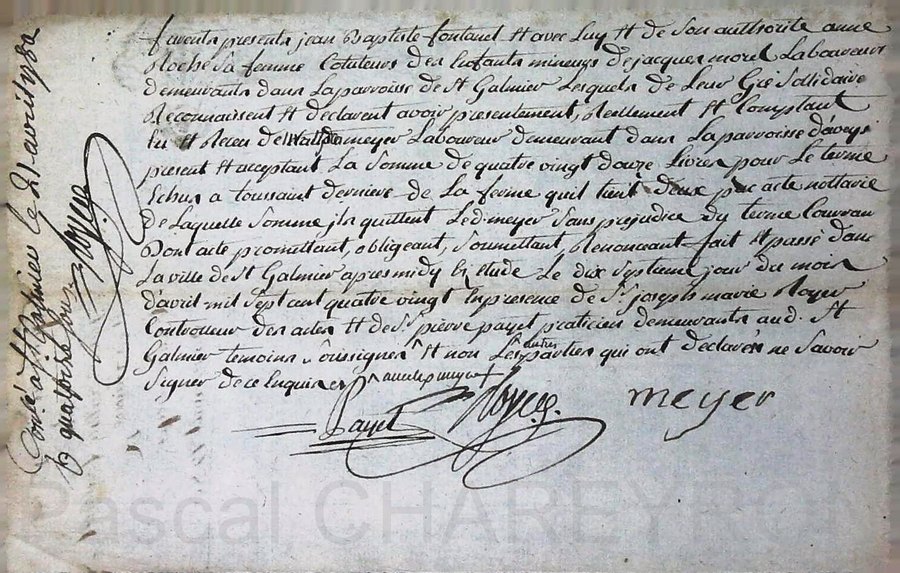 furents presents jean Baptiste fontanet et avec Luy et de Son authorité anne
Roche Sa femme Cotuteurs des Enfants mineurs de jacques morel Laboureur
demeurants dans La parroisse de St Galmier Lesquels de Leur Gré Solidaire
Reconnaissent et declarent avoir presentement, Reellement et Comptant
Eu et Receu de meyer Laboureur demeurant dans La parroisse d'aveyse
present et acceptant La Somme de quatre vingt douze Livres pour Le terme
Echus a toussaint derniere de La ferme quil tient deux par acte nottarié
de Laquelle Somme jls quittent Led. meyer Sans prejudice du terme Courran
Dont acte promettant, obligeant, Soumettant, Renoncant fait et passé dans
La ville de St Galmier apres midy En etude Le dix Septieme jour du mois
d'avril mil Sept cent quatre vingt En presence de Sr. joseph marie Royer
Controlleur des actes et de Sr. pierre payet praticien demeurants aud. St
Galmier temoins Soussignés et non Les autres parties qui ont declarés ne Savoir
Signer de ce Enquis avec le meyer
Payet Royer meyer
Con.lé a St Galmier le 21 avril 1780
quatorze sous Royer
Pascal CHAREYRON